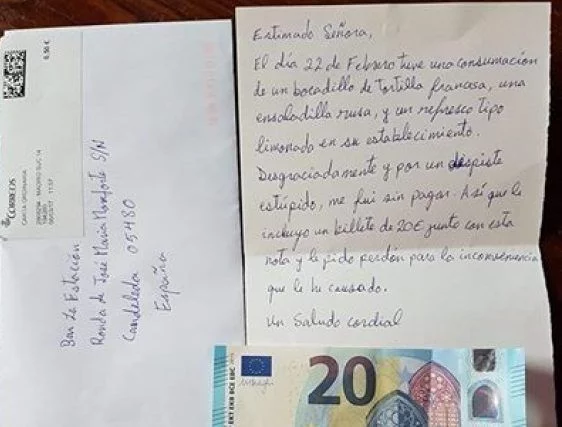 Estimado Señora,
El día 22 de Febrero tuve una consumación
de un bocadillo de tortilla francesa, una
ensaladilla rusa, y un refresco tipo
limonada en su establecimiento.
Desgraciadamente y por un despiste
estúpido, me fui sin pagar. Así que le
incluyo un billete de 20€ junto con esta
nota y le pido perdón para la inconveniencia
que le he causado.
Un Saludo cordial
Bar La Estación
Ronda de José María Monforte S/N
Candeleda 05480
España
Correos
CARTA ORDINARIA
6,50 €
20